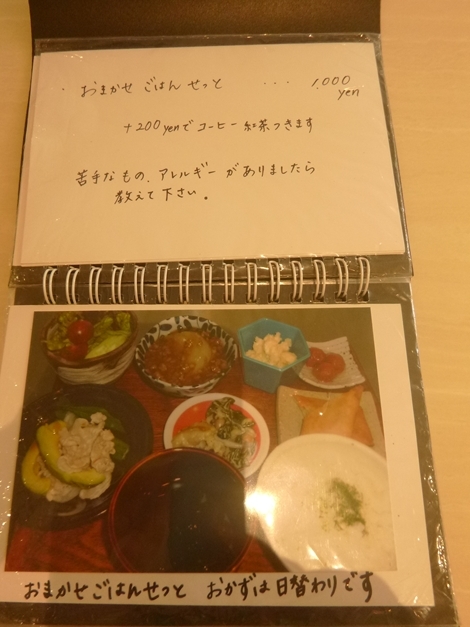 ・ おまかせ ごはん せっと ・・・ 1,000
yen
+200yenで コーヒー 紅茶つきます
苦手なもの、アレルギーがありましたら
教えて下さい。
おまかせごはんせっと おかずは日替わりです